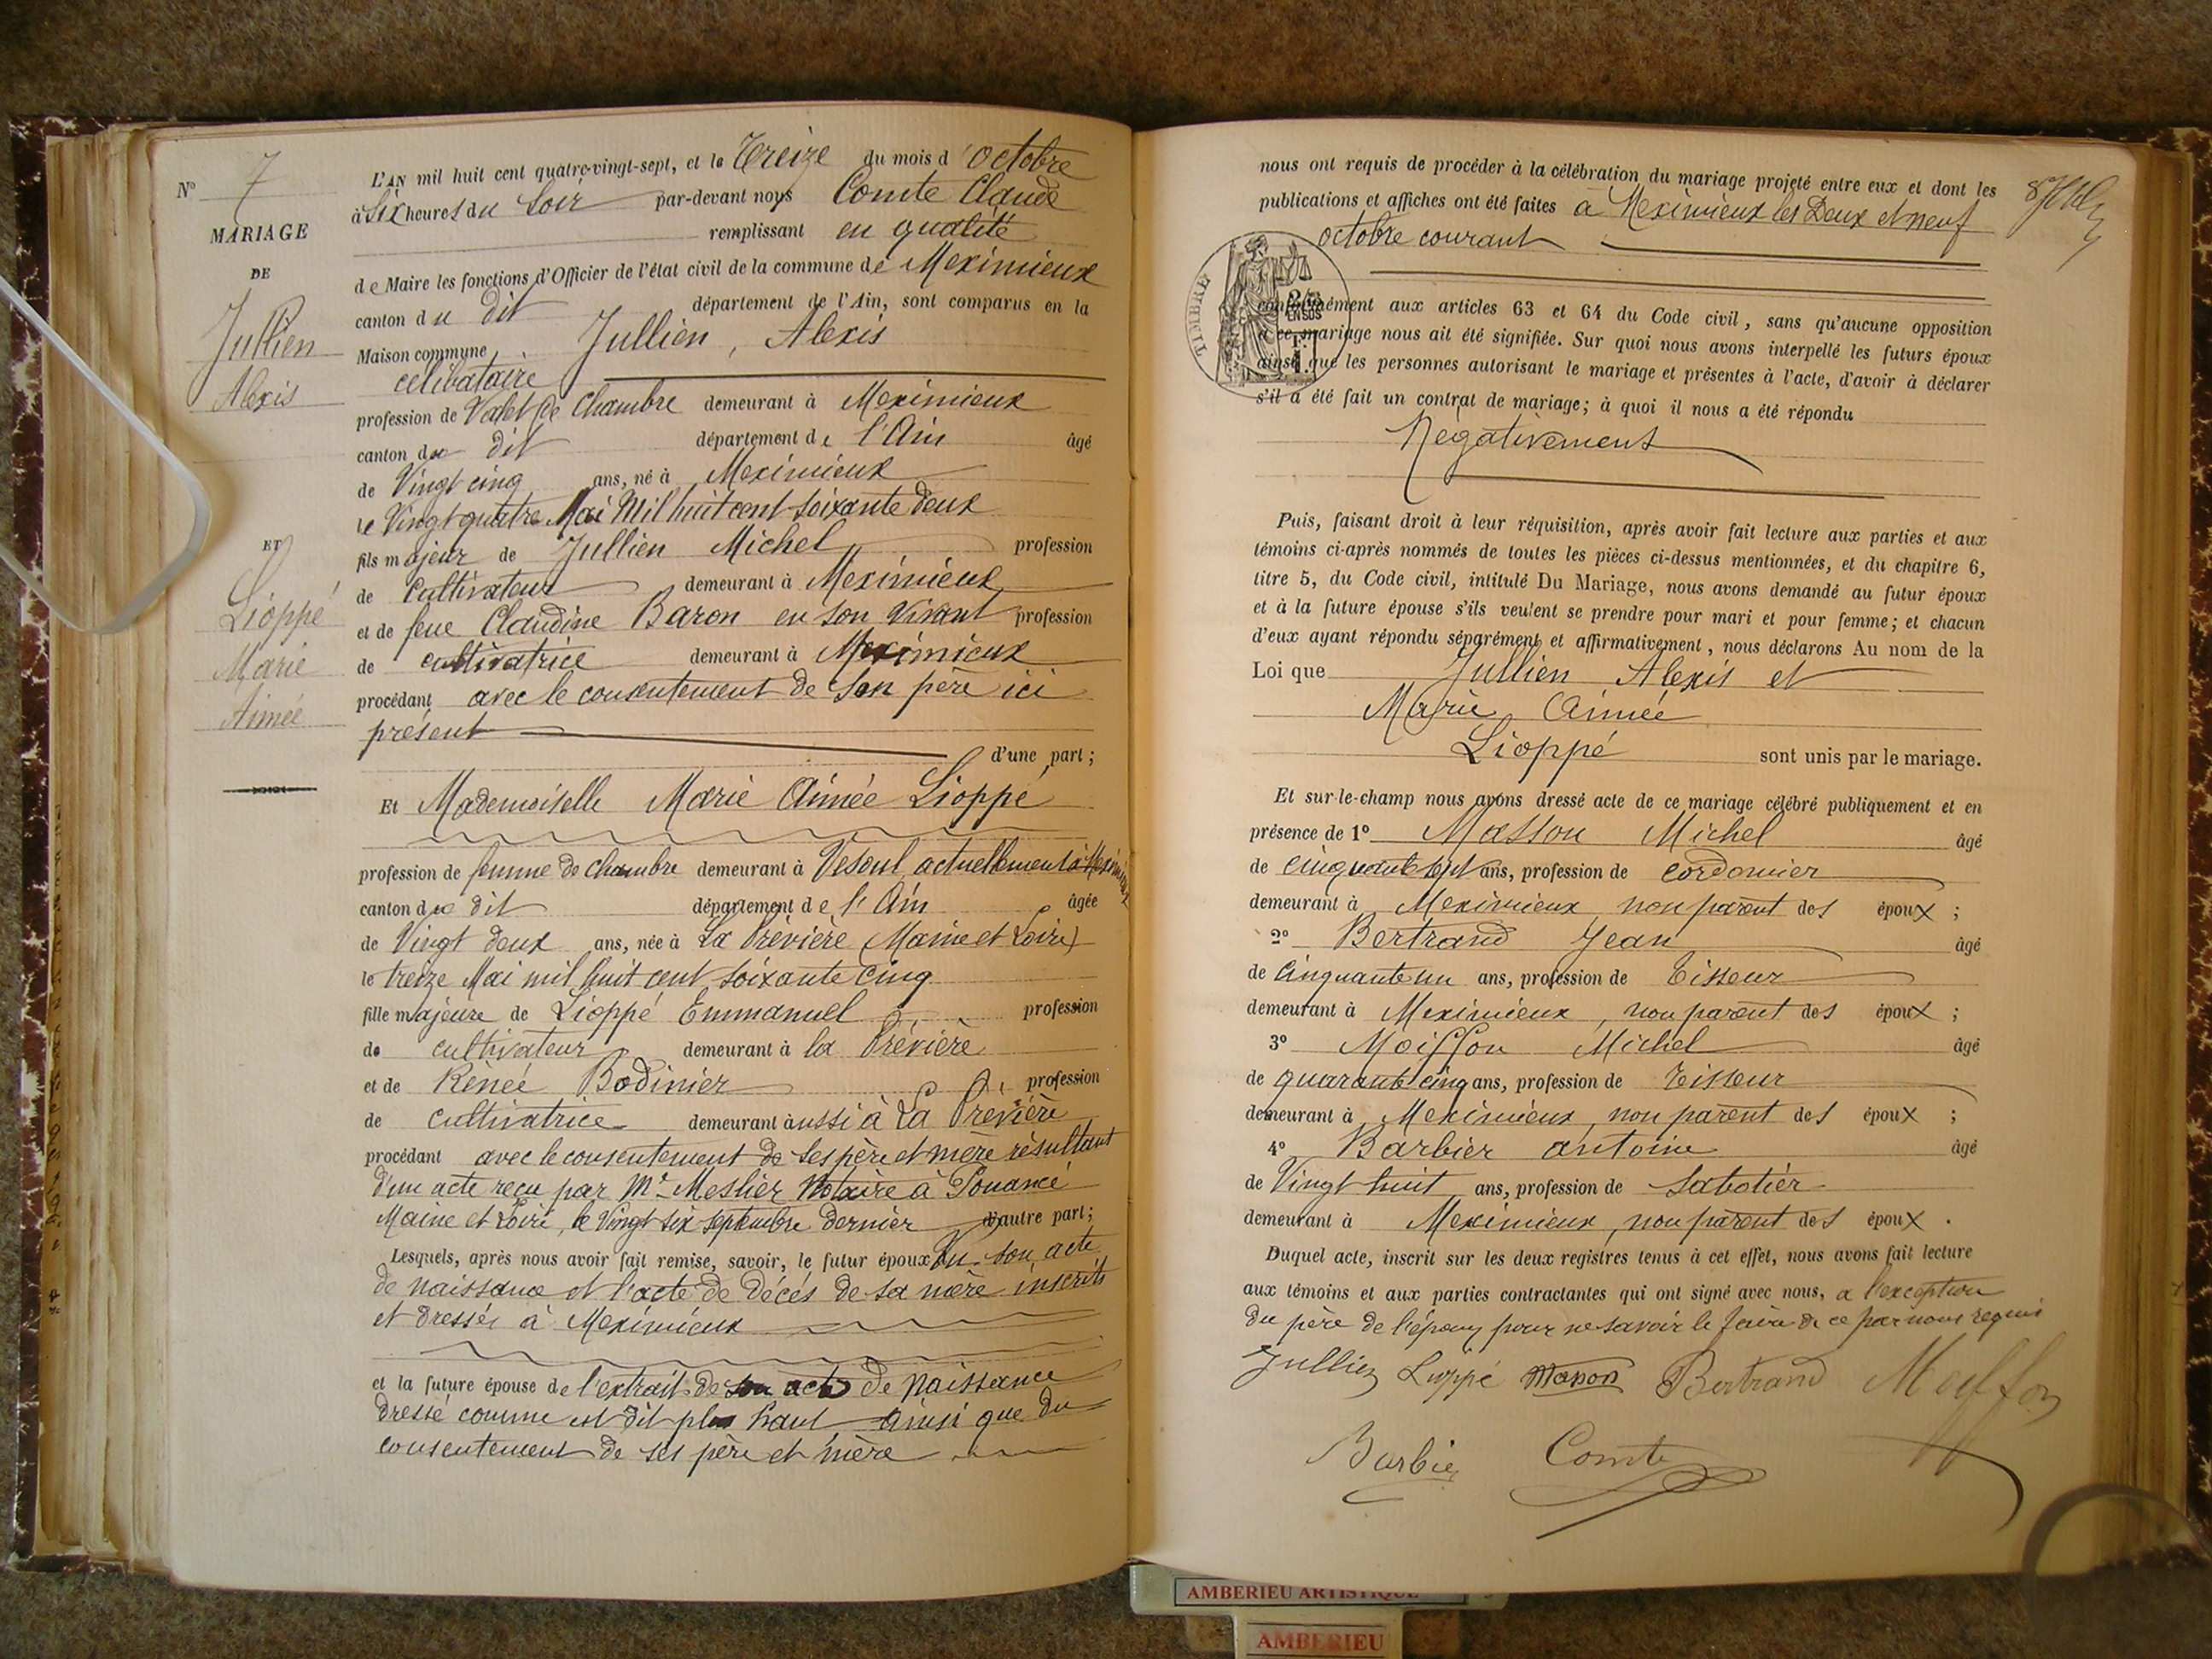 N° 7
MARIAGE
DE
Jullien
Alexis
ET
Lioppé
Marie
Aimée
L'AN mil huit cent quatre-vingt-sept, et le Treize du mois d'octobre
à Six heures du Soir par-devant nous Comte Claude
remplissant en qualité
de Maire les fonctions d'Officier de l'état civil de la commune de Meximieux
canton du dit département de l'Ain, sont comparus en la
Maison commune Jullien, Alexis
célibataire
profession de Valet de Chambre demeurant à Meximieux
canton du dit département de l'Ain âgé
de Vingt cinq ans, né à Meximieux
le Vingt quatre Mai Mil huit cent soixante deux
fils majeur de Jullien Michel profession
de Cultivateur demeurant à Meximieux
et de feue Claudine Baron en son vivant profession
de cultivatrice demeurant à Meximieux
procédant avec le consentement de son père ici
présent
d'une part;
Et Mademoiselle Marie Aimée Lioppé
profession de femme de chambre demeurant à Vesoul actuellement à Meximieux
canton du dit département de l'Ain âgée
de Vingt deux ans, née à La Prévière (Maine et Loire)
le treize Mai mil huit cent soixante cinq
fille majeure de Lioppé Emmanuel profession
de cultivateur demeurant à la Prévière
et de Rénée Bodinier profession
de cultivatrice demeurant aussi à La Prévière
procédant avec le consentement de ses père et mère résultant
d'un acte reçu par Mr Meslier Notaire à Pouancé
Maine et Loire, le Vingt six septembre dernier d'autre part;
Lesquels, après nous avoir fait remise, savoir, le futur époux Du son acte
de naissance et l'acte de décés de sa mère inscrits
et dressés à Meximieux
et la future épouse de l'extrait de son acte de Naissance
dressé comme est dit plus haut ainsi que du
consentement de ses père et mère
nous ont requis de procéder à la célébration du mariage projeté entre eux et dont les
publications et affiches ont été faites à Meximieux les Deux et neuf
octobre courant
TIMBRE
conformément aux articles 63 et 64 du Code civil, sans qu'aucune opposition
à ce mariage nous ait été signifiée. Sur quoi nous avons interpellé les futurs époux
ainsi que les personnes autorisant le mariage et présentes à l'acte, d'avoir à déclarer
s'il a été fait un contrat de mariage; à quoi il nous a été répondu
Négativement
Puis, faisant droit à leur réquisition, après avoir fait lecture aux parties et aux
témoins ci-après nommés de toutes les pièces ci-dessus mentionnées, et du chapitre 6,
titre 5, du Code civil, intitulé Du Mariage, nous avons demandé au futur époux
et à la future épouse s'ils veulent se prendre pour mari et pour femme; et chacun
d'eux ayant répondu séparément et affirmativement, nous déclarons Au nom de la
Loi que Jullien Alexis et
Marie Aimée
Lioppé sont unis par le mariage.
Et sur-le-champ nous avons dressé acte de ce mariage célébré publiquement et en
présence de 1° Masson Michel âgé
de cinquante sept ans, profession de cordonnier
demeurant à Meximieux non parent des époux;
2° Bertrand Jean âgé
de Cinquante un ans, profession de Tisseur
demeurant à Meximieux, non parent des époux;
3° Moisson Michel âgé
de quarante cinq ans, profession de Tisseur
demeurant à Meximieux, non parent des époux;
4° Barbier antoine âgé
de Vingt huit ans, profession de Sabotier
demeurant à Meximieux, non parent des époux.
Duquel acte, inscrit sur les deux registres tenus à cet effet, nous avons fait lecture
aux témoins et aux parties contractantes qui ont signé avec nous, à l'exception
du père de l'époux pour ne savoir le faire de ce par nous requis
Jullien Lioppé Masson Bertrand
Barbier Comte
AMBERIEU ARTISTIQUE
AMBERIEU